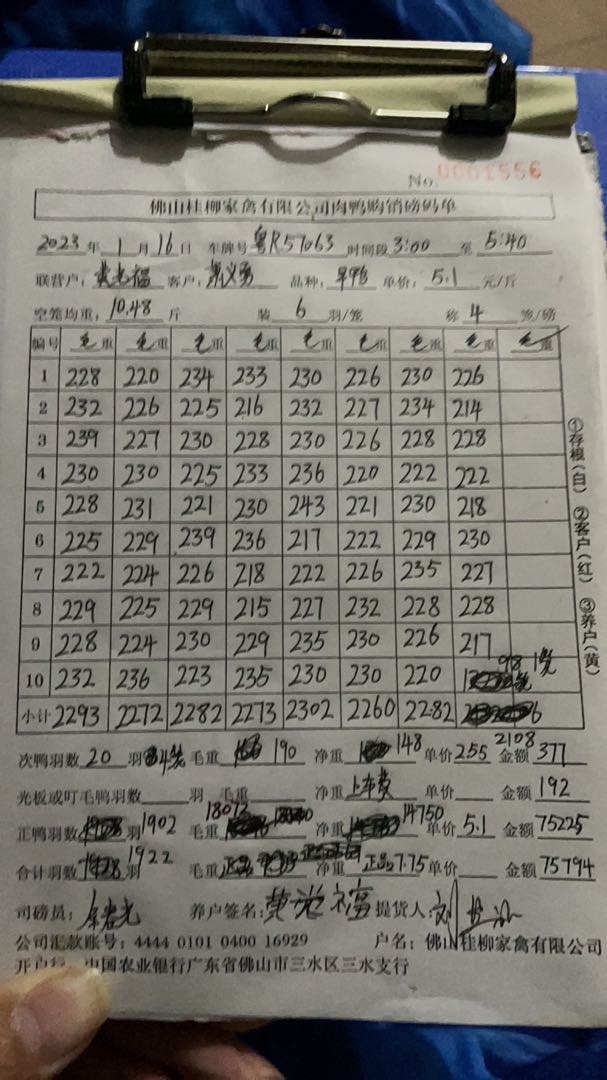 No. 0001556
佛山桂柳家禽有限公司肉鸭购销磅码单
2023年1月16日 车牌号粤R57063 时间段3:00至5:40
联营户:黄光福 客户: 品种: 单价:5.1元/斤
空笼均重:10.48斤 装6羽/笼 称4笼/磅
编号 毛重 毛重 毛重 毛重 毛重 毛重 毛重 毛重 毛重
1 228 220 234 233 230 226 230 226
2 232 226 225 216 232 227 234 214
3 239 227 230 228 230 226 228 228
4 230 230 225 233 236 220 222 222
5 228 231 221 230 243 221 230 218
6 225 229 239 236 217 222 229 230
7 222 224 226 218 222 226 235 227
8 229 225 229 215 227 232 228 228
9 228 224 230 229 235 230 226 217
10 232 236 223 235 230 230 220 98 1笼
小计 2293 2272 2282 2273 2302 2260 2282 2108
次鸭羽数20羽 4笼 毛重190 净重148 单价2.55 金额377
光板或叮毛鸭羽数 羽 毛重 净重 上车费 单价 金额192
正鸭羽数1902羽 毛重18072 净重14750 单价5.1 金额75225
合计羽数1922羽 毛重 净重 正品7.75 单价 金额75794
司磅员: 养户签名:黄光福 提货人:
公司汇款账号:4444 0101 0400 16929 户名:佛山桂柳家禽有限公司
开户行:中国农业银行广东省佛山市三水区三水支行
①存根(白) ②客户(红) ③养户(黄)